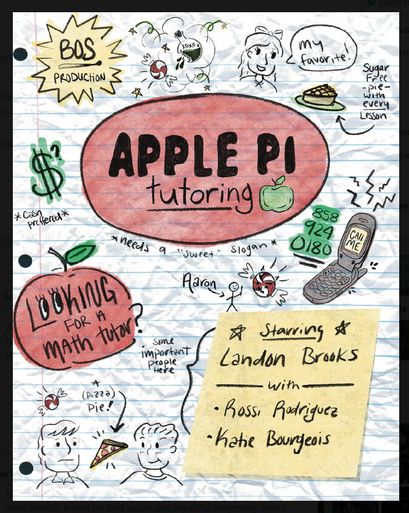 BOS
PRODUCTION
my
favorite!
Sugar
Free
-pie-
with
every
Lesson
APPLE PI
tutoring
$?
*Cash
preffered*
858
924
0180
CALL
ME
*needs a "sweet" slogan*
LOOKING
FOR A
math tutor?
Aaron
some
important
people
here
Starring
Landon Brooks
with
• Rossi Rodriguez
• Katie Bourgeois
A
(pizza)
pie!